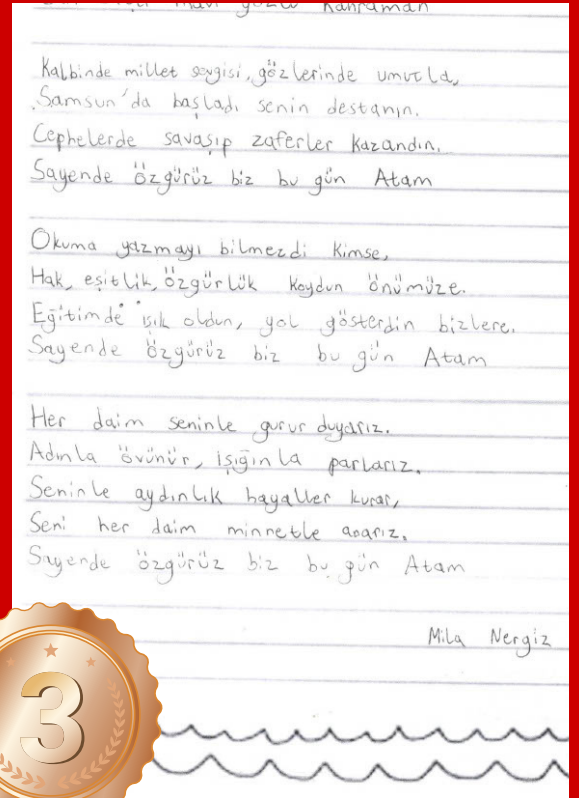 mavi gözlü Kahraman
Kalbinde millet sevgisi, gözlerinde umutla,
Samsun'da başladı senin destanın.
Cephelerde savaşıp zaferler kazandın,
Sayende özgürüz biz bu gün Atam
Okuma yazmayı bilmezdi kimse,
Hak, eşitlik, özgürlük koydun önümüze.
Eğitimde ışık oldun, yol gösterdin bizlere.
Sayende özgürüz biz bu gün Atam
Her daim seninle gurur duyarız.
Adınla övünür, ışığınla parlarız.
Seninle aydınlık hayaller kurar,
Seni her daim minnetle anarız.
Sayende özgürüz biz bu gün Atam
Mila Nergiz
3